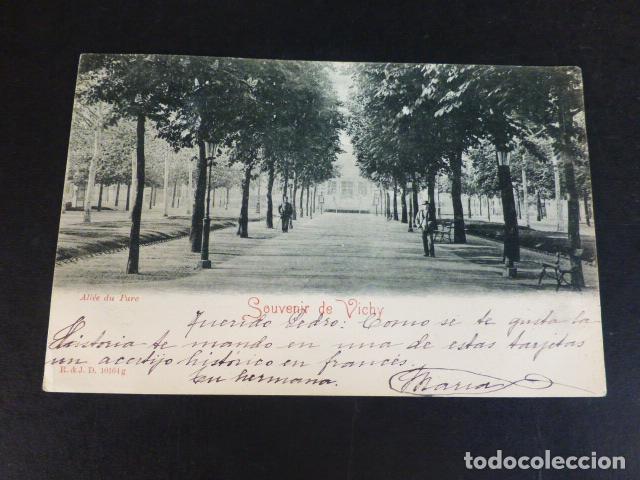 Allée du Parc
Souvenir de Vichy
Querido Pedro: Como se te gusta la
Historia te mando en una de estas tarjetas
un acertijo histórico en francés.
R. & J. D. 10164 g
tu hermana.
María
todocoleccion.net